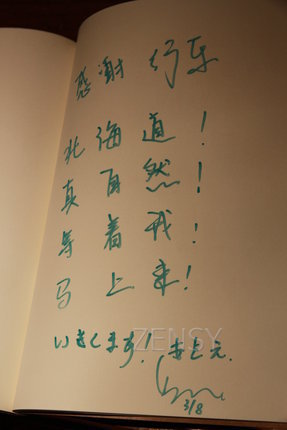 感谢 行车
北海道！
真自然！
等着我！
马上来！
いきます！ 安上元.
3/8
ZENSY